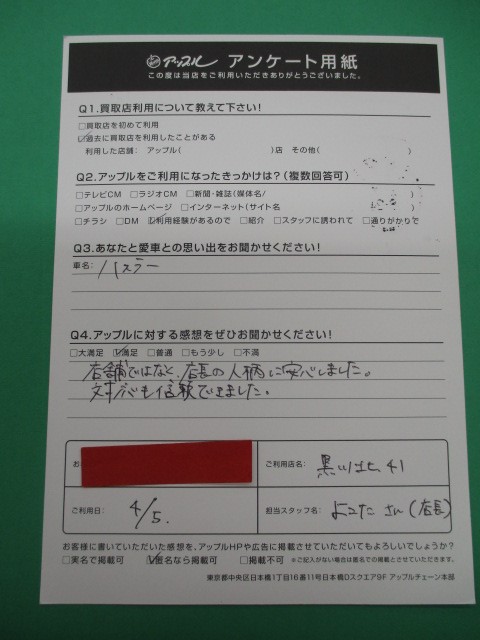 アップル アンケート用紙
この度は当店をご利用いただきありがとうございました。
Q1.買取店利用について教えて下さい!
□買取店を初めて利用
☑過去に買取店を利用したことがある
利用した店舗: アップル( )店 その他( )
Q2.アップルをご利用になったきっかけは?(複数回答可)
□テレビCM □ラジオCM □新聞・雑誌(媒体名/ )
□アップルのホームページ □インターネット(サイト名 )
□チラシ □DM ☑利用経験があるので □紹介 □スタッフに誘われて □通りがかりで
Q3.あなたと愛車との思い出をお聞かせください!
車名: ハスラー
Q4.アップルに対する感想をぜひお聞かせください!
□大満足 ☑満足 □普通 □もう少し □不満
店舗ではなく、店長の人柄に安心しました。
対応も信頼できました。
お
ご利用店名: 黒川北41
ご利用日: 4/5.
担当スタッフ名: よこた さん(店長)
お客様に書いていただいた感想を、アップルHPや広告に掲載させていただいてもよろしいでしょうか?
□実名で掲載可 ☑匿名なら掲載可 □掲載不可 ※ご記入がない場合は匿名での掲載とさせていただきます。
東京都中央区日本橋1丁目16番11号日本橋Dスクエア9F アップルチェーン本部